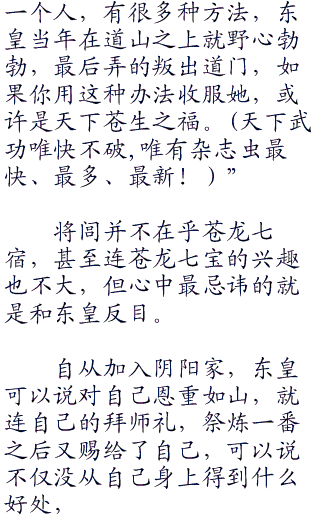 一个人，有很多种方法，东
皇当年在道山之上就野心勃
勃，最后弄的叛出道门，如
果你用这种办法收服她，或
许是天下苍生之福。(天下武
功唯快不破,唯有杂志虫最
快、最多、最新！)”
将闾并不在乎苍龙七
宿，甚至连苍龙七宝的兴趣
也不大，但心中最忌讳的就
是和东皇反目。
自从加入阴阳家，东皇
可以说对自己恩重如山，就
连自己的拜师礼，祭炼一番
之后又赐给了自己，可以说
不仅没从自己身上得到什么
好处，